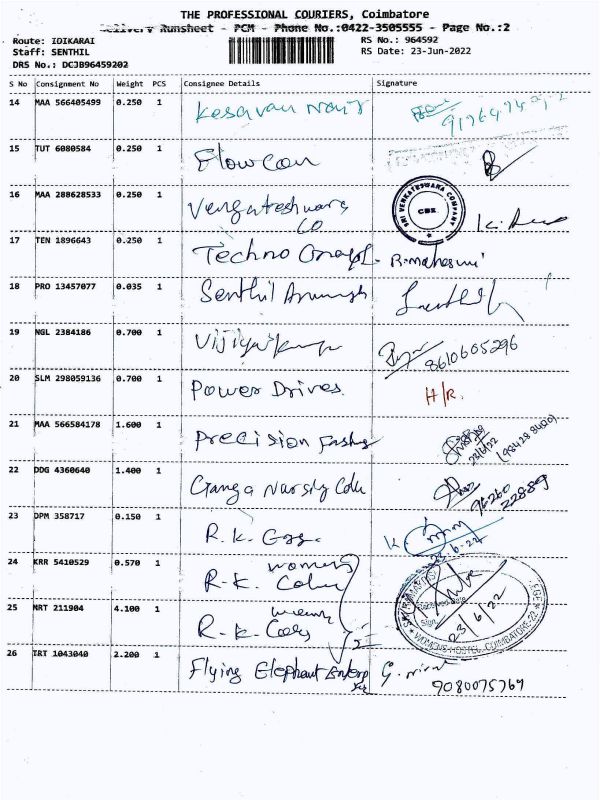 THE PROFESSIONAL COURIERS, Coimbatore
Delivery Runsheet - PCM - Phone No.:0422-3505555 - Page No.:2
Route: IDIKARAI
RS No.: 964592
Staff: SENTHIL
RS Date: 23-Jun-2022
DRS No.: DCJB96459202
S No Consignment No Weight PCS Consignee Details Signature
14 MAA 566405499 0.250 1 Kesavan Nair
15 TUT 6080584 0.250 1 Flowcon
16 MAA 288628533 0.250 1 Vengateshwara Co
SRI VENKATESWARA COMPANY
CBE
17 TEN 1896643 0.250 1 Techno R. maheswari
18 PRO 13457077 0.035 1 Senthil
19 NGL 2384186 0.700 1 Vijiyakumar 8610605296
20 SLM 298059136 0.700 1 Power Drives. H/R.
21 MAA 566584178 1.600 1 Precision 23/6/22
22 DDG 4360640 1.400 1 Ganga Nursing 96260 22889
23 DPM 358717 0.150 1 R. K. 23-6-22
24 KRR 5410529 0.570 1 R. K. women's
25 MRT 211904 4.100 1 R. K. 23/6/22
WOMENS HOSTEL, COIMBATORE-22
26 IRT 1043040 2.200 1 Flying Elephant 9080075769